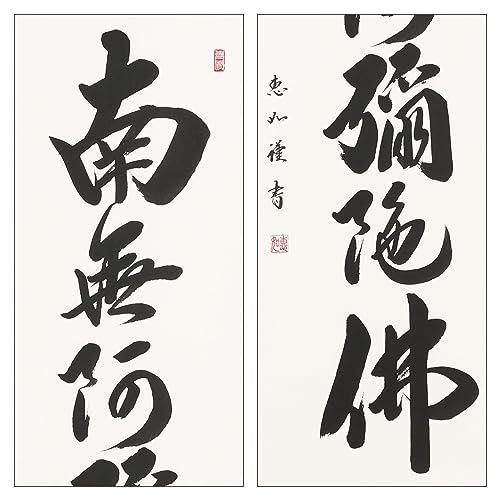 南無阿
彌陀佛
恵如謹書